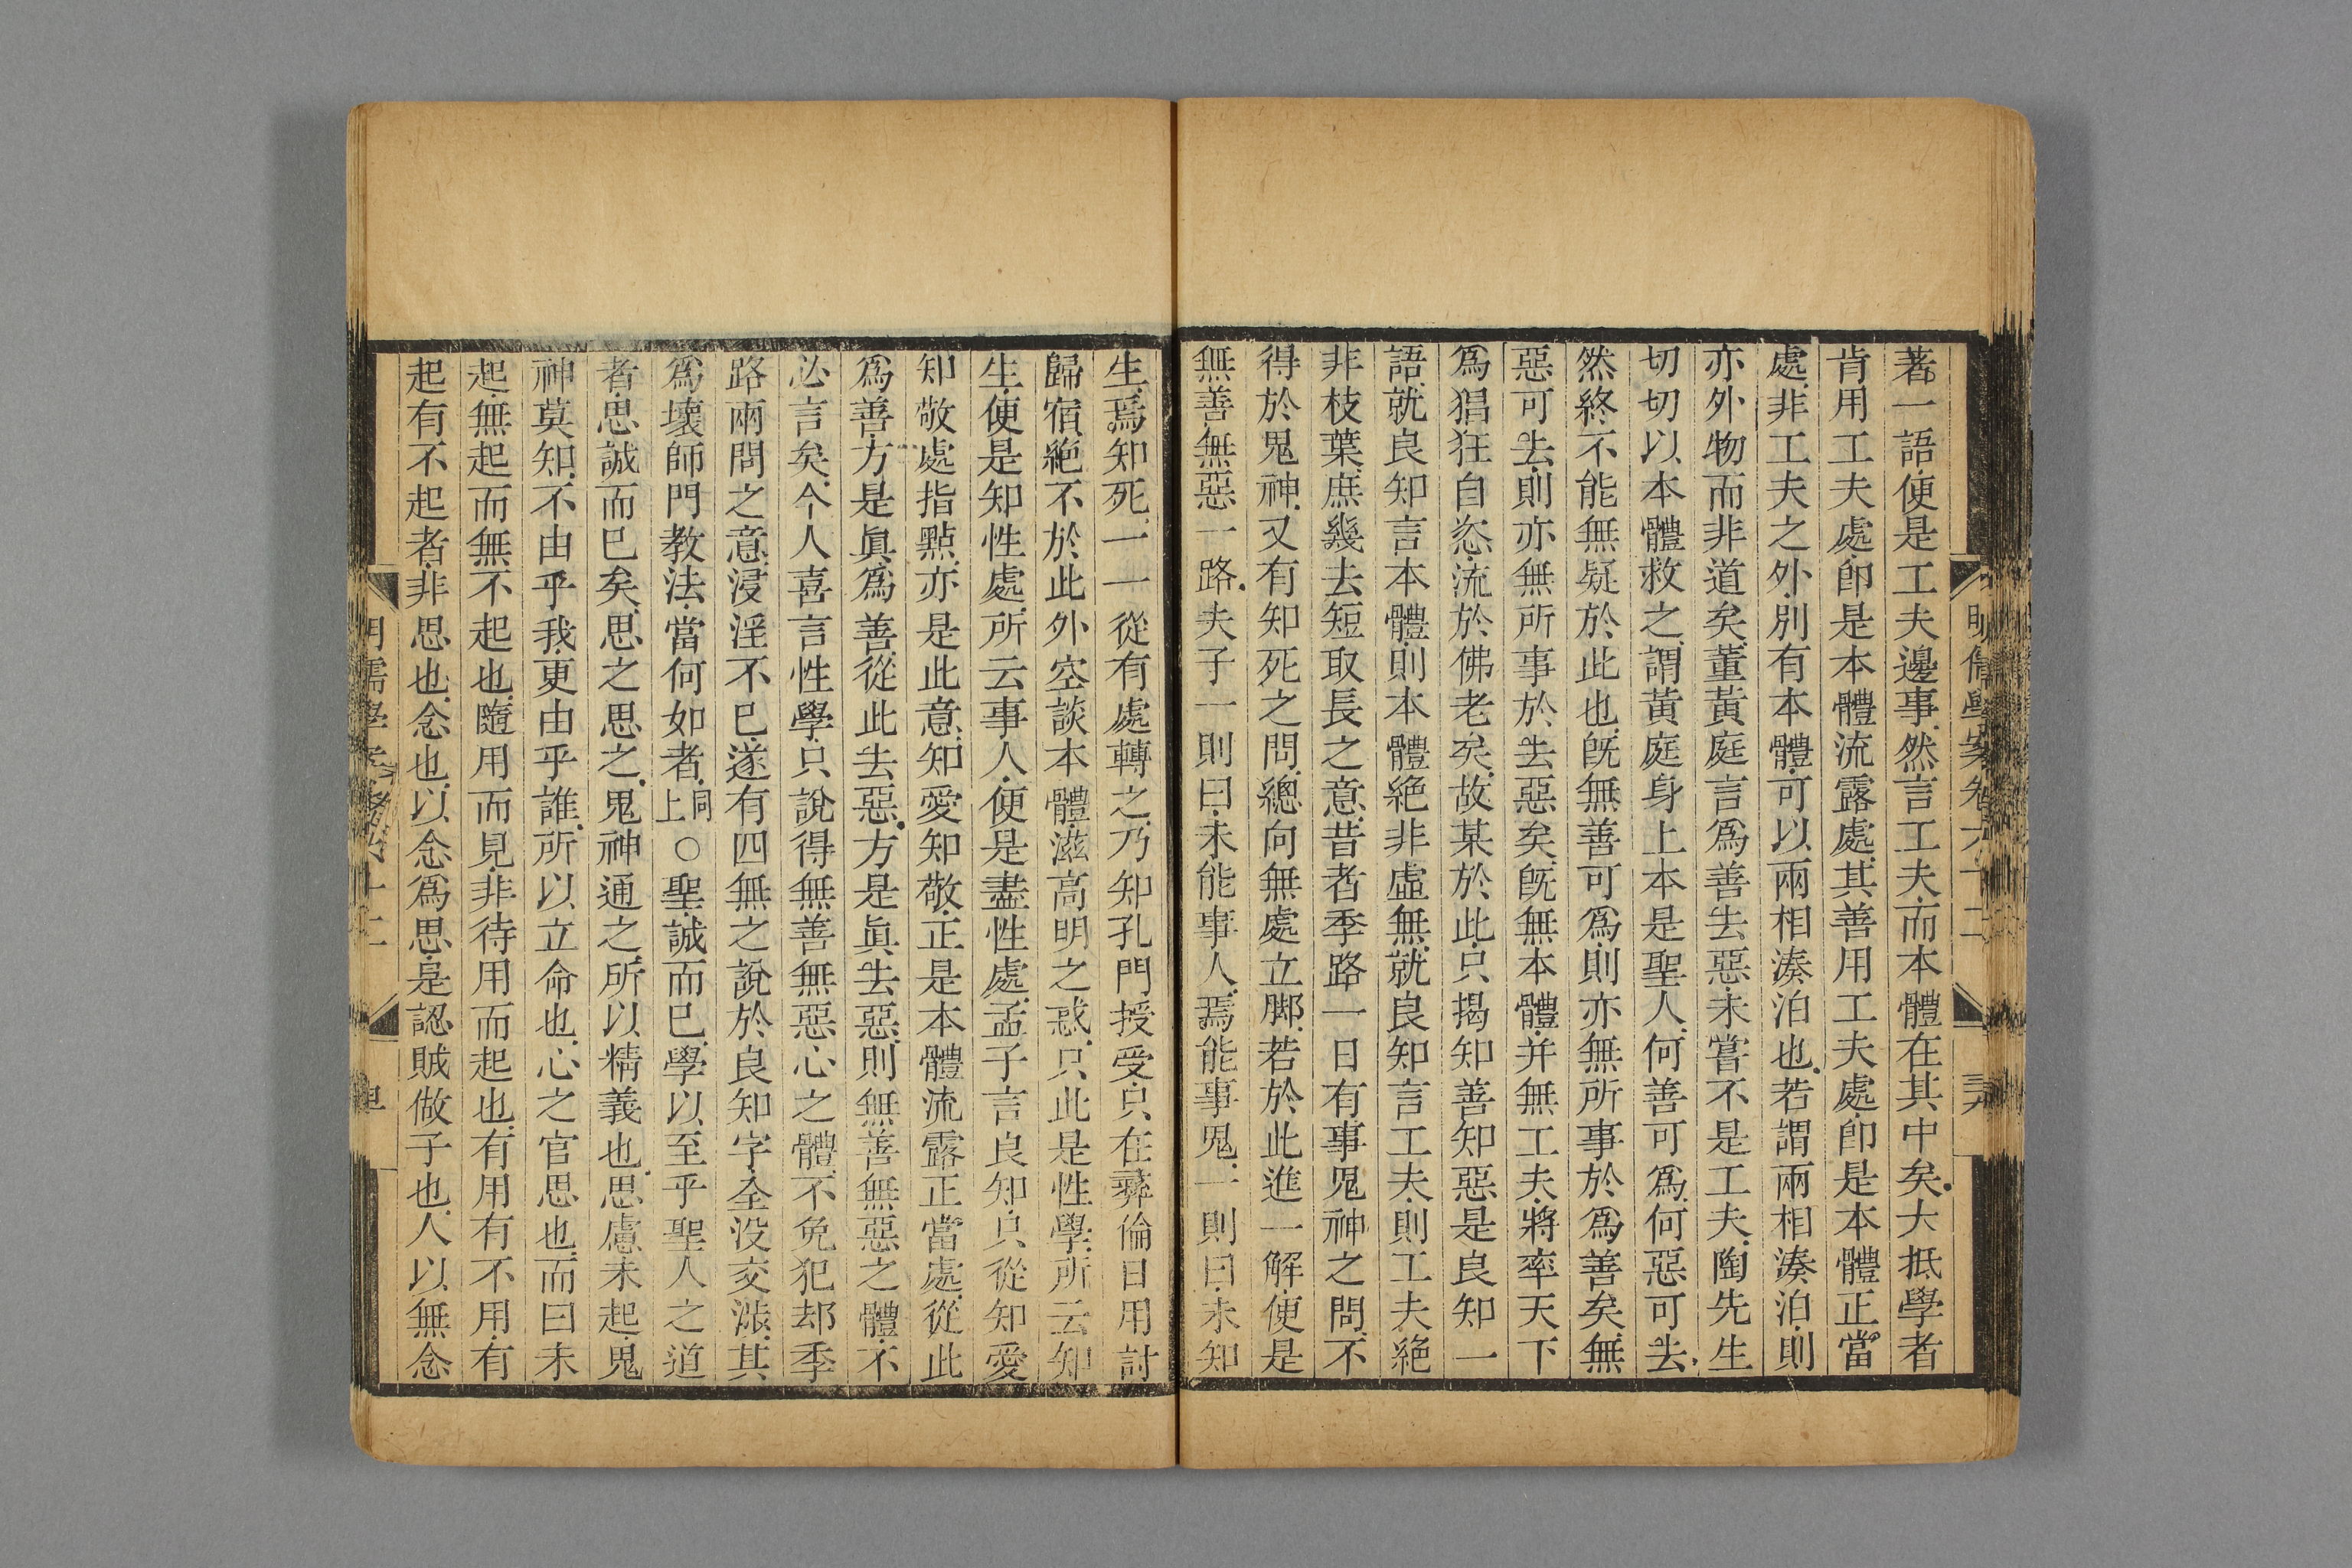 著一語便是工夫邊事然言工夫而本體在其中矣大抵學者
肯用工夫處卽是本體流露處其善用工夫處卽是本體正當
處非工夫之外別有本體可以兩相湊泊也若謂兩相湊泊則
亦外物而非道矣董黃庭言爲善去惡未嘗不是工夫陶先生
切切以本體救之謂黃庭身上本是聖人何善可爲何惡可去
然終不能無疑於此也旣無善可爲則亦無所事於爲善矣無
惡可去則亦無所事於去惡矣旣無本體并無工夫將率天下
爲猖狂自恣流於佛老矣故某於此只揭知善知惡是良知一
語就良知言本體則本體絕非虛無就良知言工夫則工夫絕
非枝葉庶幾去短取長之意昔者季路一日有事鬼神之問不
得於鬼神又有知死之問總向無處立脚若於此進一解便是
無善無惡一路夫子一則曰未能事人焉能事鬼一則曰未知
生焉知死一一從有處轉之乃知孔門授受只在彝倫日用討
歸宿絕不於此外空談本體滋高明之惑只此是性學所云知
生便是知性處所云事人便是盡性處孟子言良知只從知愛
知敬處指點亦是此意知愛知敬正是本體流露正當處從此
爲善方是眞爲善從此去惡方是眞去惡則無善無惡之體不
必言矣今人喜言性學只說得無善無惡心之體不免犯却季
路兩問之意浸淫不已遂有四無之說於良知字全没交涉其
爲壞師門教法當何如者同上○聖誠而已學以至乎聖人之道
者思誠而已矣思之思之鬼神通之所以精義也思慮未起鬼
神莫知不由乎我更由乎誰所以立命也心之官思也而曰未
起無起而無不起也隨用而見非待用而起也有用有不用有
起有不起者非思也念也以念爲思是認賊做子也人以無念
明儒學案卷六十二